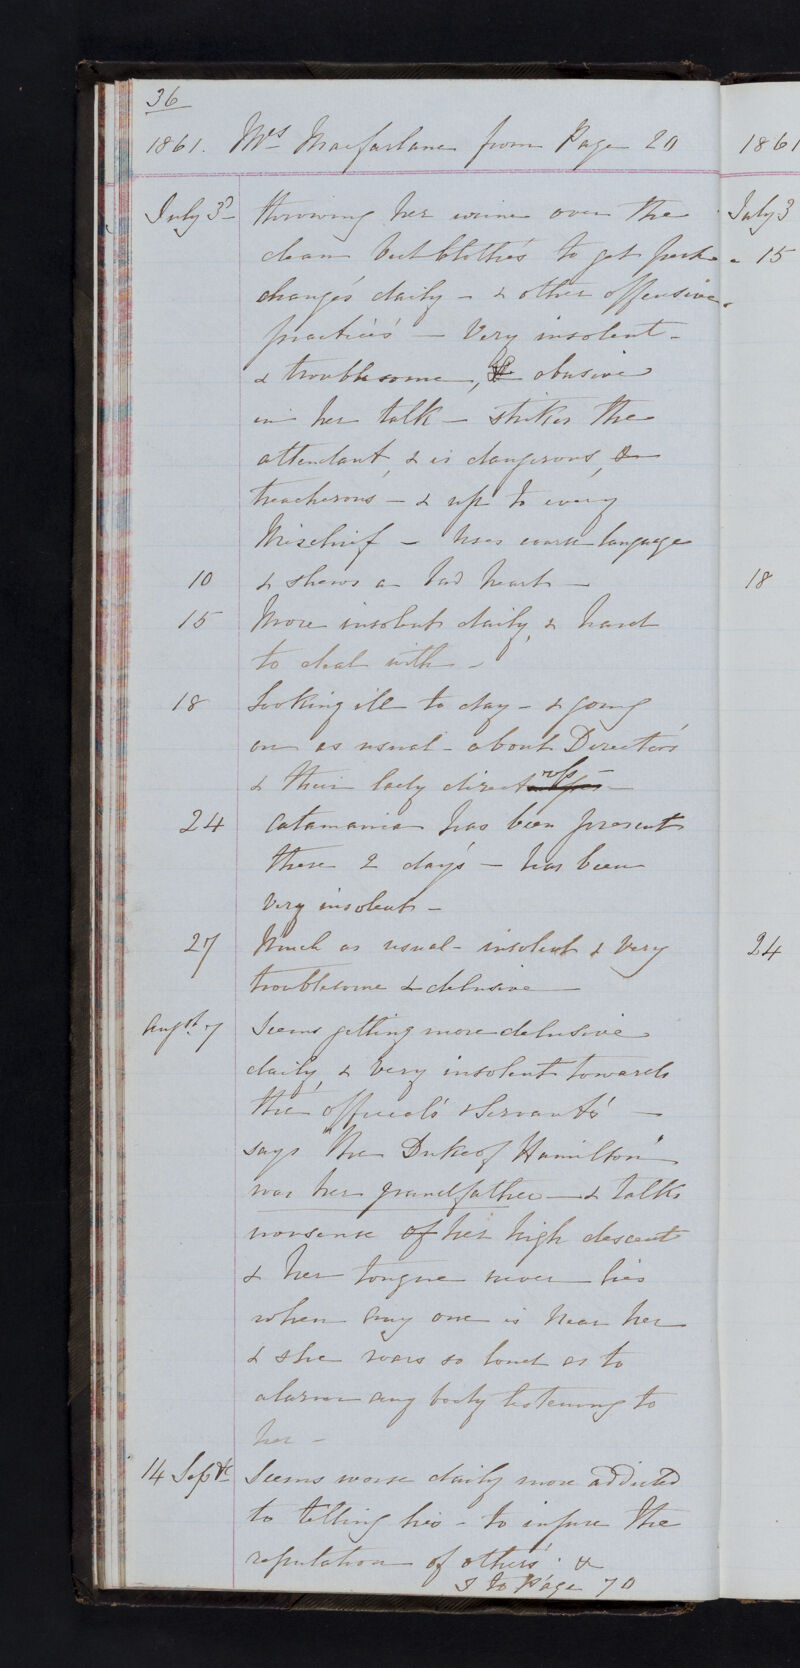 36
1861. Mrs Macfarlane from Page 20
July 3d throwing her urine over the
clean bed clothe's to get fresh
change's daily - & other offensive
practice's - Very insolent -
& troublesome, & abusive
in her talk - strikes the
attendant, & is dangerous, &
treacherous - & up to every
Mischief - uses coarse language
10 & shews a bad heart -
15 More insolent daily, & hard
to deal with -
18 Looking ill to day - & going
on as usual - about Director's
& their lady direct
24 Catamania has been present
these 2 day's - has been
very insolent -
27 Much as usual - insolent & very
troublesome & delusive
Augst 7 Seems getting more delusive
daily, & very insolent towards
the official's & Servant's -
says "the Duke of Hamilton"
was her grandfather - & talks
nonsense of her high descent
& her tongue never lies
when any one is near her
& she roars so loud as to
alarm any body listening to
her -
14 Septr Seems worse daily more addicted
to telling lies - to injure the
reputation of others' &
& to Page 70
1861
July 3
" 15
18
24